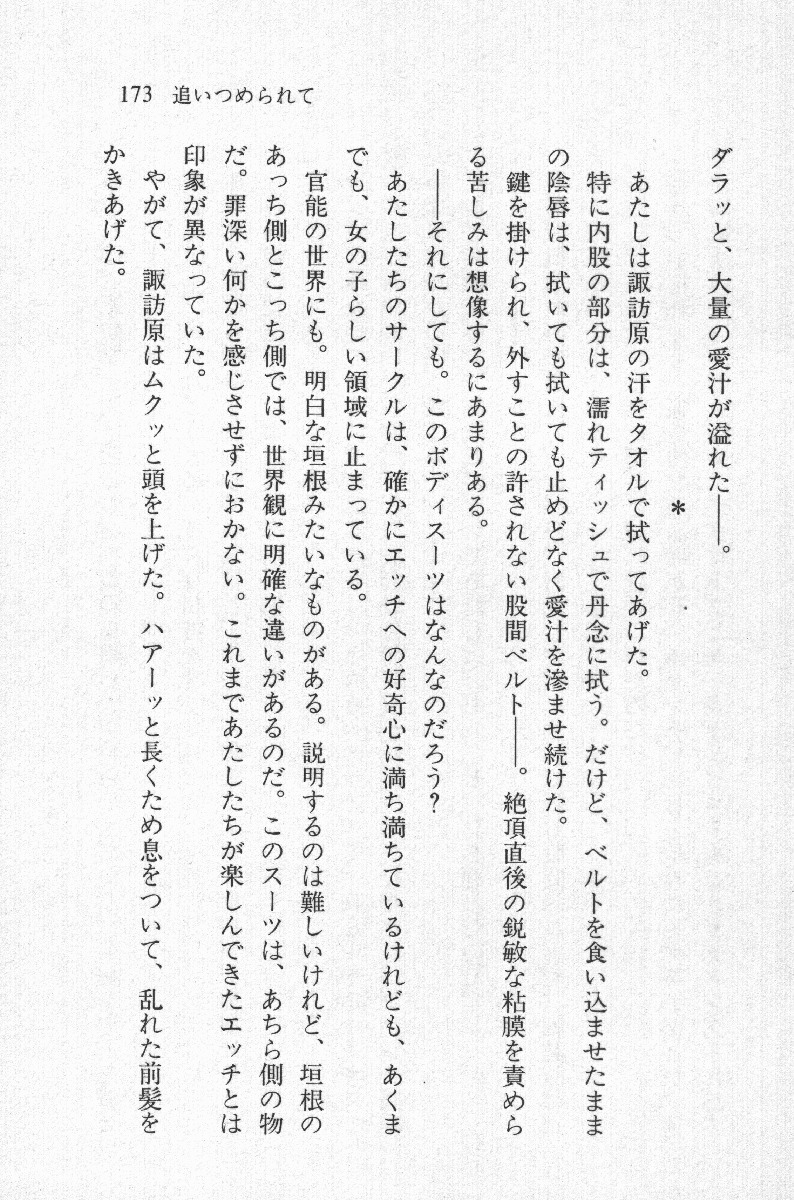 173 追いつめられて
ダラッと、大量の愛汁が溢れた――。
＊
あたしは諏訪原の汗をタオルで拭ってあげた。
特に内股の部分は、濡れティッシュで丹念に拭う。だけど、ベルトを食い込ませたまま
の陰唇は、拭いても拭いても止めどなく愛汁を滲ませ続けた。
鍵を掛けられ、外すことの許されない股間ベルト――。絶頂直後の鋭敏な粘膜を責めら
る苦しみは想像するにあまりある。
――それにしても。このボディスーツはなんなのだろう？
あたしたちのサークルは、確かにエッチへの好奇心に満ち満ちているけれども、あくま
でも、女の子らしい領域に止まっている。
官能の世界にも。明白な垣根みたいなものがある。説明するのは難しいけれど、垣根の
あっち側とこっち側では、世界観に明確な違いがあるのだ。このスーツは、あちら側の物
だ。罪深い何かを感じさせずにおかない。これまであたしたちが楽しんできたエッチとは
印象が異なっていた。
やがて、諏訪原はムクッと頭を上げた。ハアーッと長くため息をついて、乱れた前髪を
かきあげた。